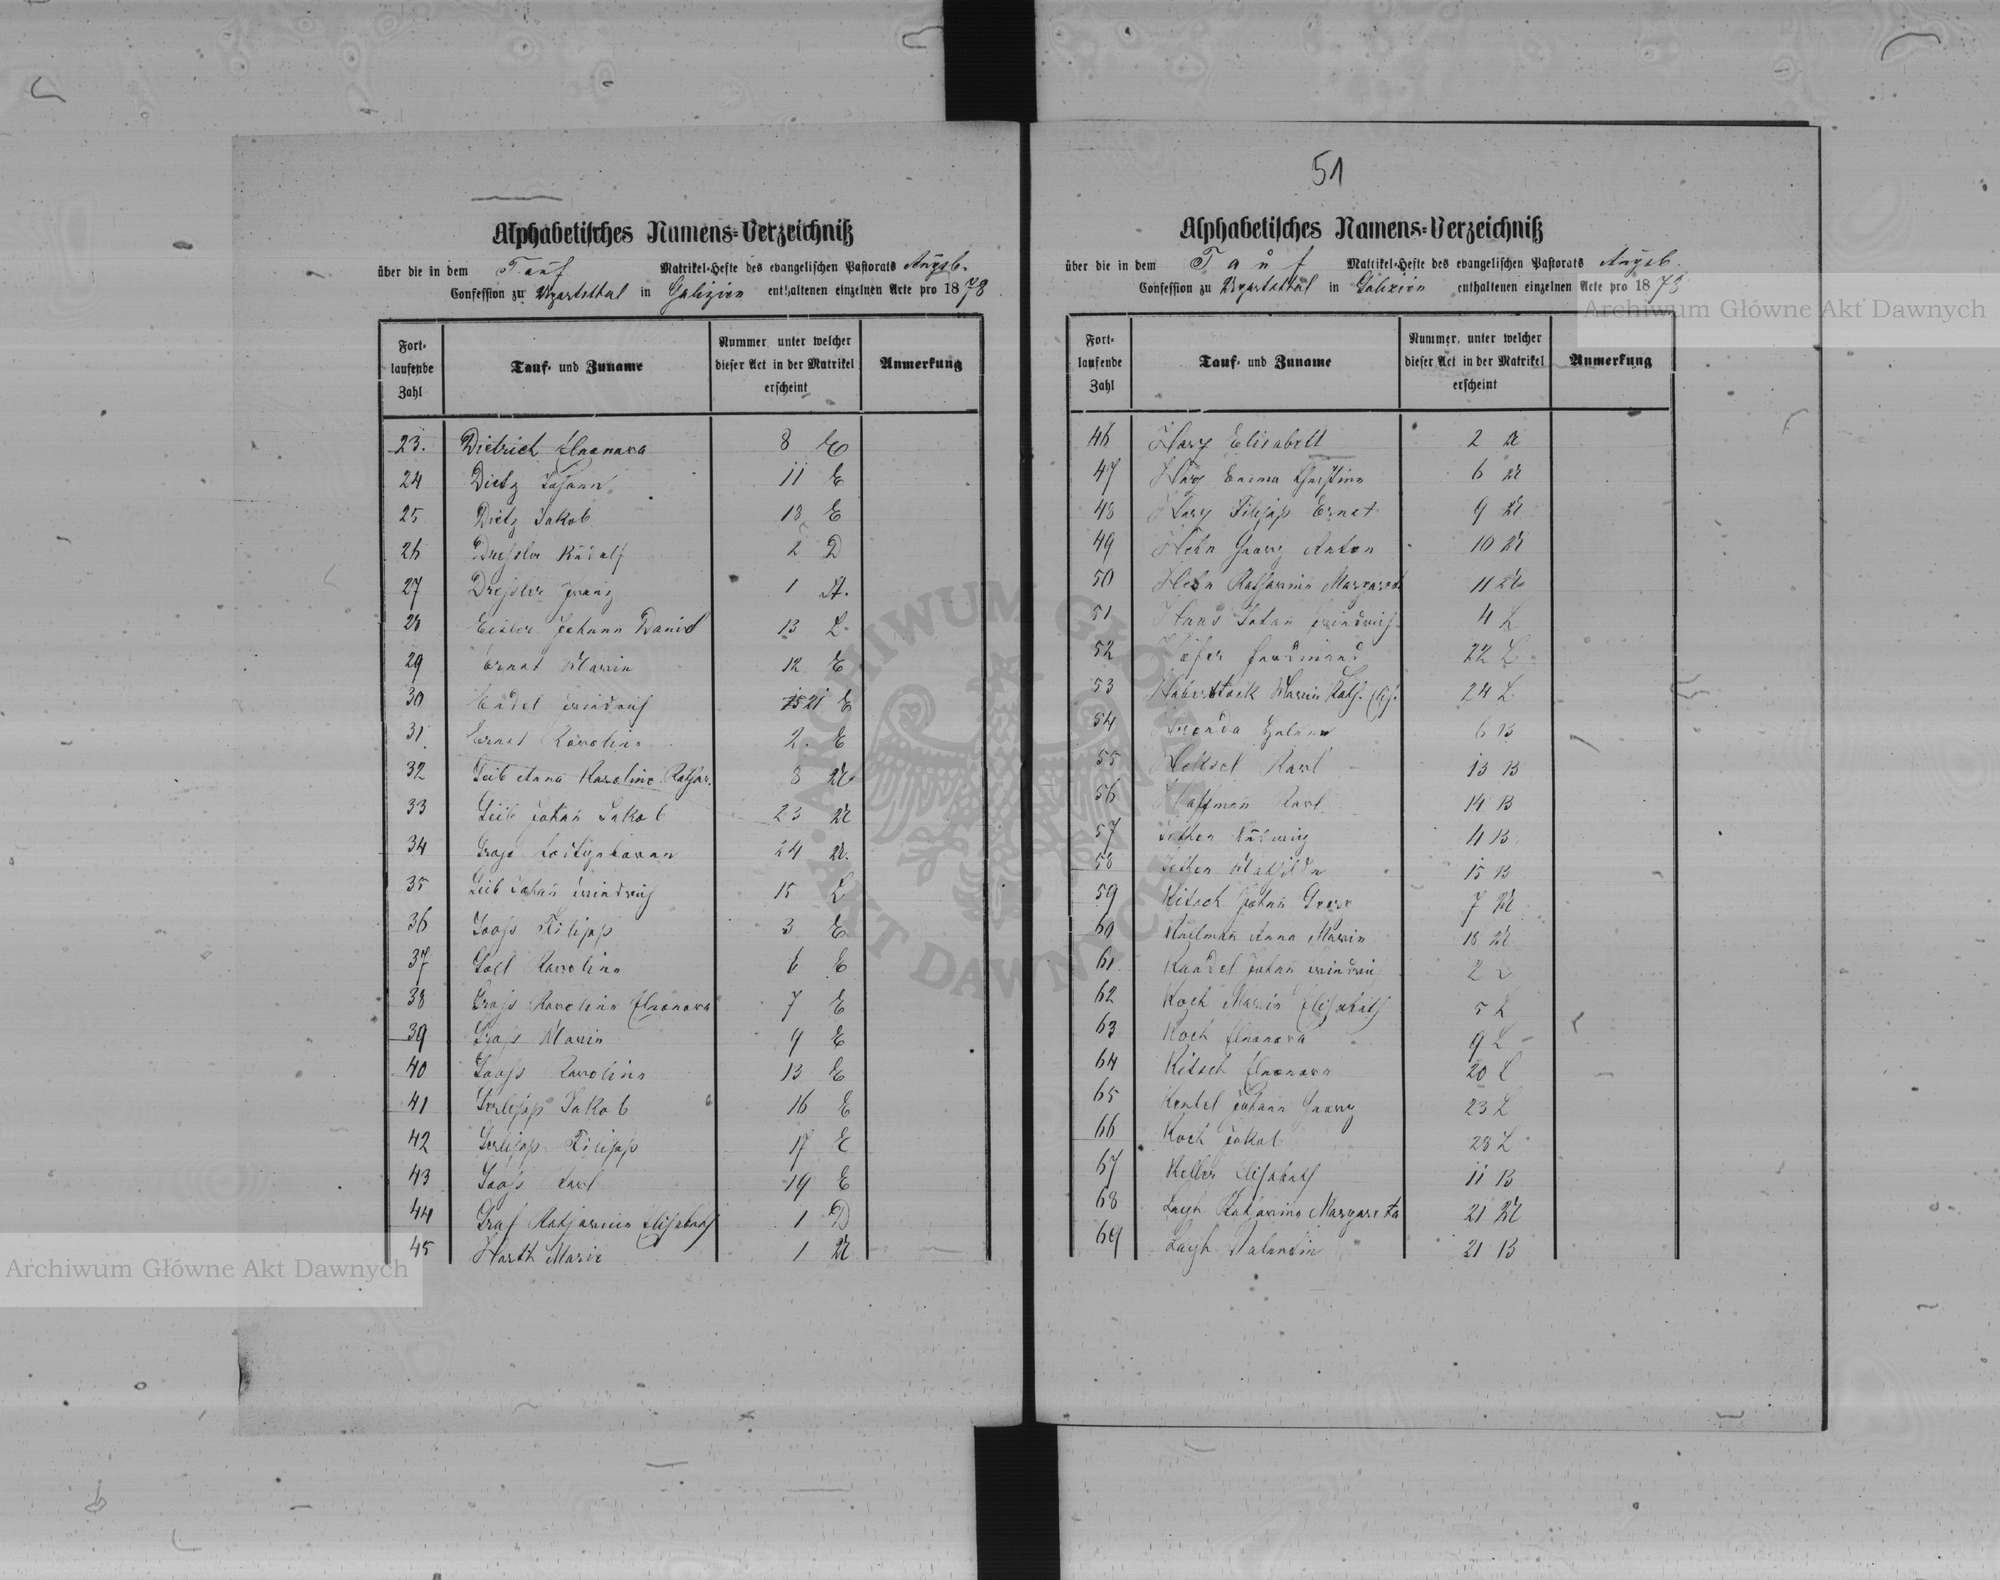 51
Alphabetisches Namens-Verzeichniß
über die in dem Tauf Matrikel-Hefte des evangelischen Pastorats Augsb.
Confession zu Ugartsthal in Galizien enthaltenen einzelnen Acte pro 1878
Fort-
laufende
Zahl
Tauf- und Zuname
Nummer, unter welcher
dieser Act in der Matrikel
erscheint
Anmerkung
23. Dietrich Eleonora 8 E
24 Dietz Johann 11 E
25 Dietz Jakob 18 E
26 Dressler Rudolf 2 D
27 Dressler Franz 1 A.
28 Eisler Johann Daniel 13 L
29 Ernst Maria 12 E
30 Friedrich 21 E
31. Ernst Karolina 2. E
32 Geib Anna Karoline Kathar. 8 U
33 Geib Johan Jakob 23 U
34 24 U.
35 Geib Johan Friedrich 15 L
36 Filipp 3 E
37 Karolina 6 E
38 Gross Karolina Eleonora 7 E
39 Gross Maria 9 E
40 Karolina 13 E
41 Gerlipp Jakob 16 E
42 Gerlipp Filipp 17 E
43 Karl 19 E
44 Graf Katharina Elisabeth 1 D
45 Harth Marie 1 U
Alphabetisches Namens-Verzeichniß
über die in dem Tauf Matrikel-Hefte des evangelischen Pastorats Augsb.
Confession zu Ugartsthal in Galizien enthaltenen einzelnen Acte pro 1878
Fort-
laufende
Zahl
Tauf- und Zuname
Nummer, unter welcher
dieser Act in der Matrikel
erscheint
Anmerkung
46 Harz Elisabett 2 U
47 Harz Emma Christina 6 U
48 Harz Filipp Ernst 9 U
49 Hehn Georg Anton 10 U
50 Hehn Katharina Margareta 11 U
51 Haas Johan Friedrich 4 L
52 Höfer Ferdinand 22 L
53 Haberstock Maria Kath. Elis. 24 L
54 6 B
55 Karl 13 B
56 Hoffman Karl 14 B
57 Ludwig 4 B
58 Mathilda 15 B
59 Kitsch Johan Georg 7 U
60 Anna Maria 18 U
61 Kandel Johan Friedrich 2 L
62 Koch Maria Elisabeth 5 L
63 Koch Eleonora 9 L
64 Kitsch Eleonora 20 L
65 Johann Georg 23 L
66 Koch Jakob 28 L
67 Keller Elisabeth 11 B
68 Katarina Margareta 21 U
69 Valentin 21 B
Archiwum Główne Akt Dawnych
Archiwum Główne Akt Dawnych
ARCHIWUM GŁÓWNE
AKT DAWNYCH